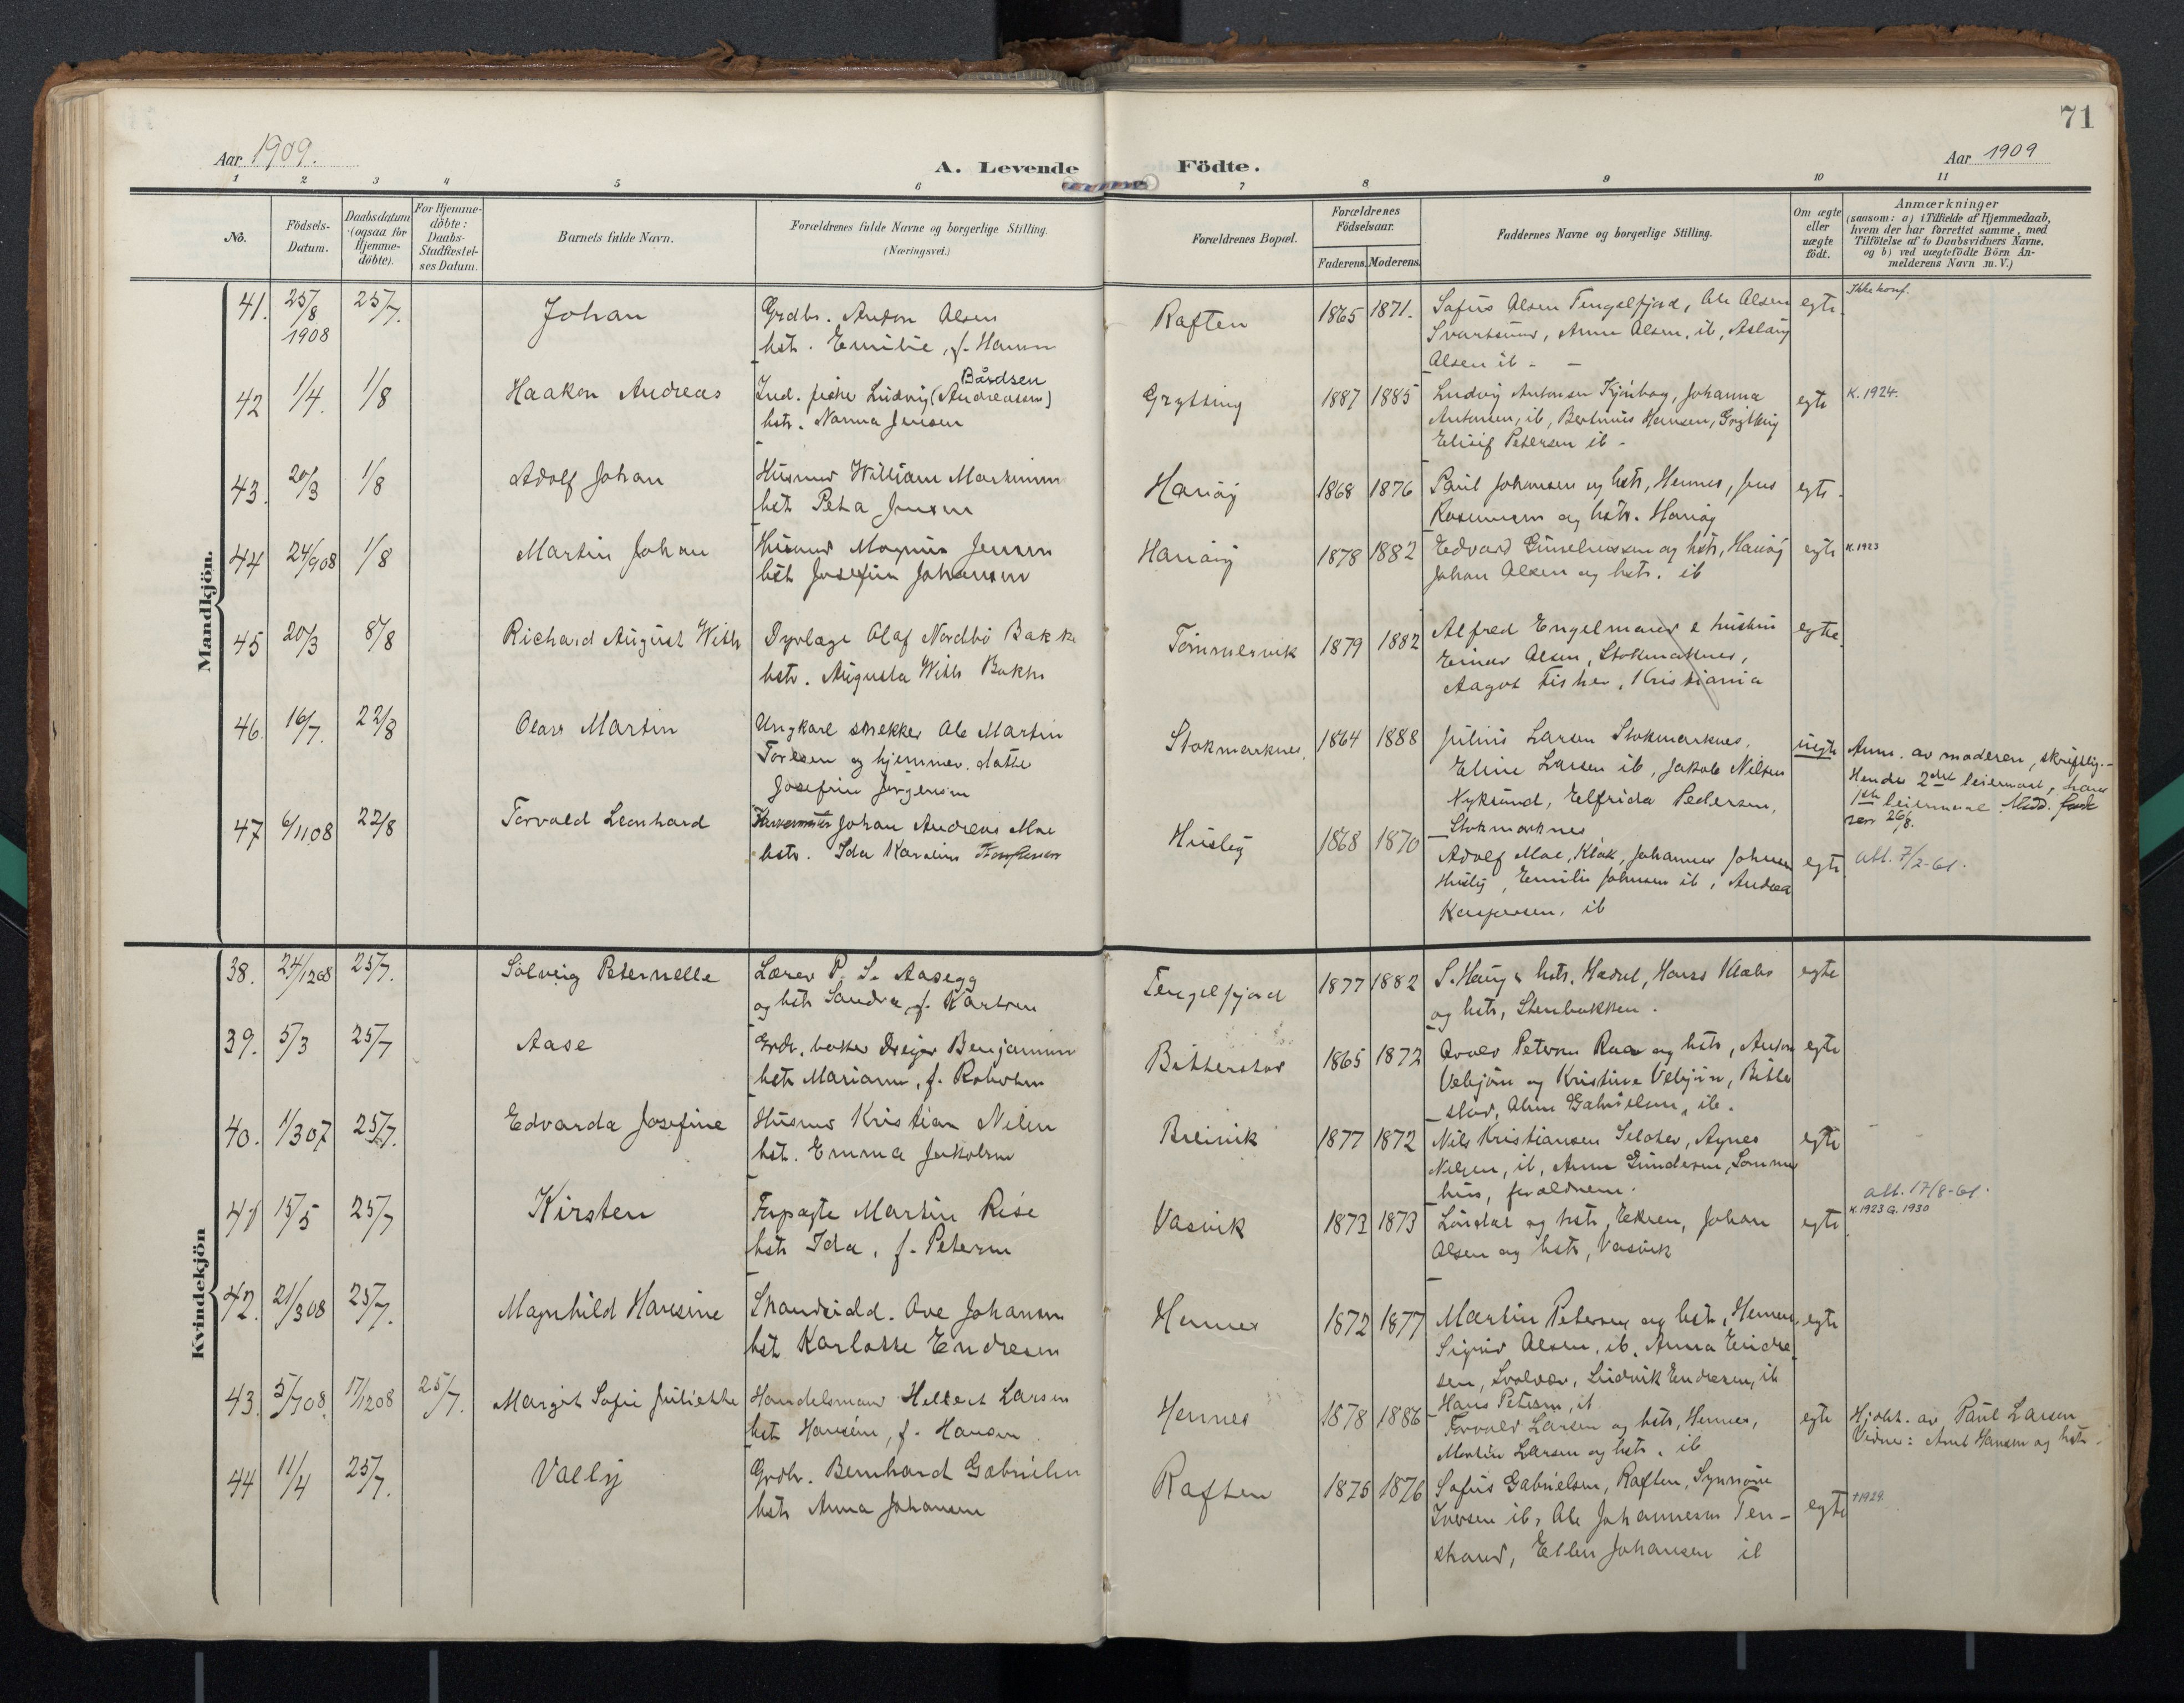 71
Aar 1909.
A. Levende Födte.
Aar 1909
1 2 3 4 5 6 7 8 9 10 11
No.
Födsels-
Datum.
Daabsdatum
(ogsaa for
Hjemme-
döbte).
For Hjemme-
döbte:
Daabs-
Stadfæstel-
ses Datum.
Barnets fulde Navn.
Forældrenes fulde Navne og borgerlige Stilling.
(Næringsvei.)
Forældrenes Bopæl.
Forældrenes
Födselsaar.
Faderens. Moderens.
Faddernes Navne og borgerlige Stilling.
Om ægte
eller
uægte
födt.
Anmærkninger
(saasom: a) i Tilfælde af Hjemmedaab,
hvem der har forrettet samme, med
Tilföielse af to Daabsvidners Navne.
og b) ved uægtefödte Börn An-
melderens Navn m. V.)
Mandkjön.
41. 25/8 1908 25/7. Johan
Grdbr. Anton Olsen
hst. Emilie, f. Hansen
Raften 1865 1871.
Sofus Olsen Tengelfjord, Ole Olsen
Svartsund, Anna Olsen, ib, Aslaug
Olsen ib -
egte. Ikke konf.
42 1/4. 1/8 Haakon Andreas
Ind. fisker Ludvig (Andreassen) Bårdsen
hstr. Nanna Jensen
Grytting 1887 1885
Ludvig Antonsen Kjönbog, Johanna
Antonsen, ib, Bertinius Hansen, Grytting
Elisif Petersen ib -
egte K. 1924.
43. 20/3 1/8 Adolf Johan
Husmd William Martinsen
hst Peta Jensen
Hanöy 1868 1876
Paul Johansen og hstr, Hennes, Jens
Rasmussen og hstr. Hanöy
egte -
44 24/908 1/8 Martin Johan
Husmd Magnus Jensen
hst Josefine Johansen
Hanöy 1878 1882
Edvard Gunelussen og hstr, Hanöy
Johan Olsen og hstr. ib
egte K. 1923
45 20/3 8/8 Richard August With
Dyrlæge Olaf Nordbö Bakke
hstr. Augusta With Bakke
Tömmervik 1879 1882
Alfred Engelmand & hustru
Einar Olsen, Stokmarknes,
Aagot Fisher, Kristiania
egte
46. 16/7. 22/8 Olav Martin
Ungkarl snekker Ole Martin
Toresen og hjemmev. datter
Josefine Jörgensen
Stokmarknes. 1864 1888
Julius Larsen Stokmarknes,
Eline Larsen ib, Jakob Nilsen
Nyksund, Elfrida Pedersen,
Stokmarknes
uegte
Anm. av moderen, skriftlig. -
Hendes 2det leiermaal, hans
1ste leiermaal.
47 6/1108 22/8 Torvald Leonhard
Johan Andreas Moe
hstr. Ida Karoline
Husby 1868 1870
Adolf Moe, Klak, Johannes Johnsen
Husby, Emilie Johnsen ib, Andrea
Kaspersen, ib
egte att. 7/2-61.
Kvindekjön
38. 24/1208 25/7. Solveig Peternelle
Lærer P. S. Aasegg
og hstr Sandra, f. Karlsen
Tengelfjord 1877 1882
S. Haug & hstr. Hadsel, Hans Klabo
og hstr, Stenbakken.
egte
39. 5/3 25/7 Aase
Benjaminsen
hstr Marianne, f. Robertsen
Bitterstad 1865 1872
Petersen Raa og hstr, Anton
Vebjörn og Kristine Vebjörn, Bitter
stad, Gabrielsen, ib.
egte
40. 1/307 25/7. Edvarda Josefine
Husmd Kristian Nilsen
hst. Emma Jakobsen
Breivik 1877 1872
Nils Kristiansen Selater, Agnes
Nilsen, ib, Anna Gundersen, Sommer
hus, forældrene.
egte
41 15/5 25/7 Kirsten
Forpagte Martin Rise
hstr Ida, f. Petersen
Vasvik 1873 1873
Lönstal og hstr, Eksren, Johan
Olsen og hstr, Vasvik
egte
att. 17/8-61.
K. 1923 G. 1930
42. 21/308 25/7. Magnhild Hansine
Strandsidd. Ove Johansen
hst Karlotte Endresen
Hennes 1872 1877
Martin Petersen og hstr, Hennes,
Sigurd Olsen, ib, Anna Endre
sen, Svolvær, Ludvik Endresen, ib
Hans Petersen, ib
egte
43. 5/708. 17/1208 25/7. Margit Sofie Juliette
Handelsmand Helbert Larsen
hst Hansine, f. Hansen
Hennes 1878 1886
Torvald Larsen og hstr, Hennes,
Martin Larsen og hstr. ib
egte
Hjdbt. av Paul Larsen
Vidne: Arnt Hansen og hstr.
44 11/4 25/7. Vally
Grdbr. Bernhard Gabrielsen
hstr Anna Johansen
Raften 1875 1876
Sofus Gabrielsen, Raften, Synnöve
Iversen ib, Ole Johannesen Ten-
strand, Ellen Johansen ib
egte †1929.